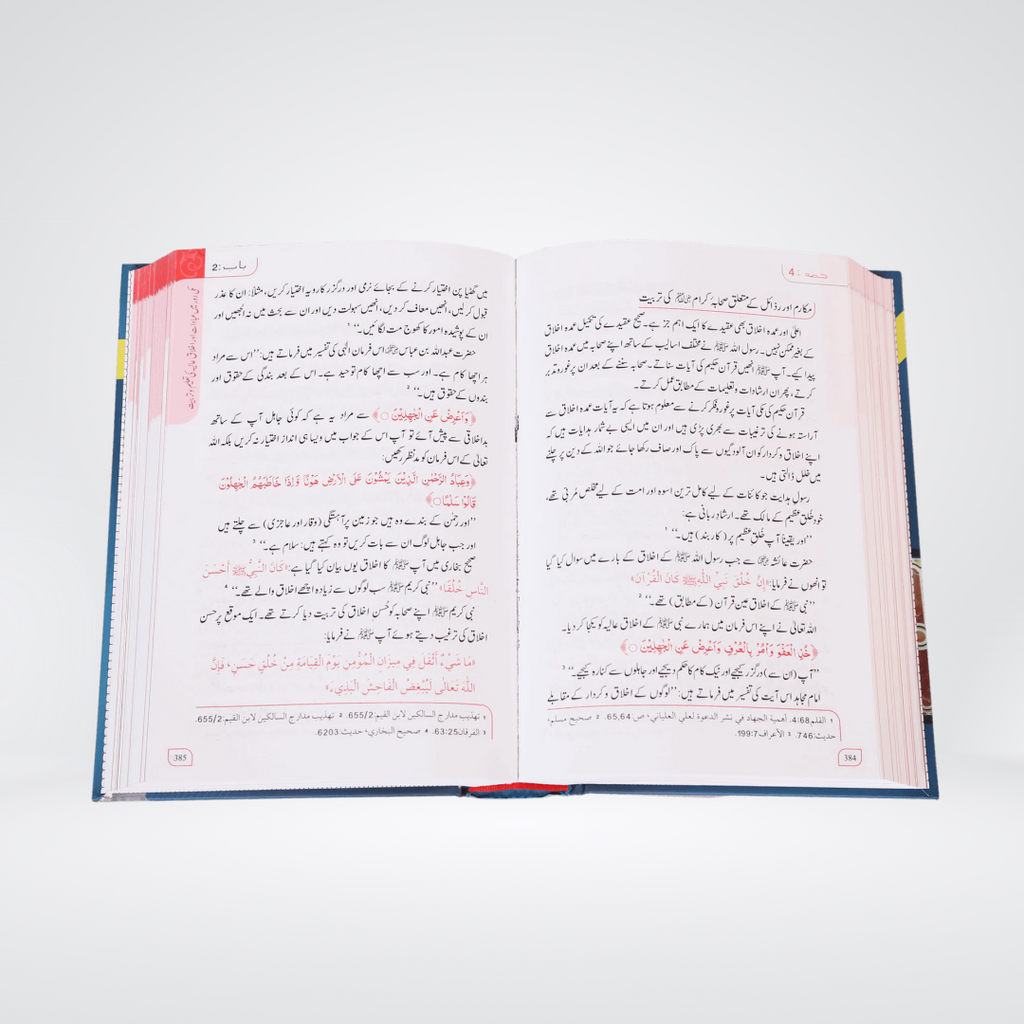 حصہ : 4
مکارم اور رذائل کے متعلق صحابۂ کرام رضی اللہ عنہم کی تربیت
اعلیٰ اور عمدہ اخلاق بھی عقیدے کا ایک اہم جز ہے۔ صحیح عقیدے کی تکمیل عمدہ اخلاق
کے بغیر ممکن نہیں۔ رسول اللہ ﷺ نے مختلف اسالیب کے ساتھ اپنے صحابہ میں عمدہ اخلاق
پیدا کیے۔ آپ ﷺ انھیں قرآن حکیم کی آیات سناتے۔ صحابہ سننے کے بعد ان پر غور و تدبر
کرتے، پھر ان ارشادات و تعلیمات کے مطابق عمل کرتے۔
قرآن حکیم کی مکی آیات پر غور و فکر کرنے سے معلوم ہوتا ہے کہ یہ آیات عمدہ اخلاق سے
آراستہ ہونے کی ترغیبات سے بھری پڑی ہیں اور ان میں ایسی بے شمار ہدایات ہیں کہ
اپنے اخلاق و کردار کو ان آلودگیوں سے پاک اور صاف رکھا جائے جو اللہ کے دین پر چلنے
میں خلل ڈالتی ہیں۔
رسول ہدایت جو کائنات کے لیے کامل ترین اسوہ اور امت کے لیے مخلص مُربّی تھے،
خود خُلق عظیم کے مالک تھے۔ ارشاد ربانی ہے:
”اور یقیناً آپ خُلق عظیم پر (کاربند) ہیں۔“ 1
حضرت عائشہ رضی اللہ عنہا سے جب رسول اللہ ﷺ کے اخلاق کے بارے میں سوال کیا گیا
تو انھوں نے فرمایا: «إِنَّ خُلُقَ نَبِيِّ اللّٰهِ ﷺ كَانَ الْقُرْآنَ»
”نبی ﷺ کے اخلاق عین قرآن (کے مطابق) تھے۔“ 2
اللہ تعالیٰ نے اپنے اس فرمان میں ہمارے نبی ﷺ کے اخلاق عالیہ کو یکجا کر دیا۔
﴿خُذِ الْعَفْوَ وَأْمُرْ بِالْعُرْفِ وَأَعْرِضْ عَنِ الْجٰهِلِيْنَ ○﴾
”آپ (ان سے) درگزر کیجیے اور نیک کام کا حکم دیجیے اور جاہلوں سے کنارہ کیجیے۔“ 3
امام مجاہد اس آیت کی تفسیر میں فرماتے ہیں: ”لوگوں کے اخلاق و کردار کے مقابلے
1 القلم 4:68. أهمية الجهاد في نشر الدعوة لعلي العلياني، ص: 65,64. 2 صحيح مسلم،
حديث: 746. 3 الأعراف 199:7.
384
باب : 2
میں گھٹیا پن اختیار کرنے کے بجائے نرمی اور درگزر کا رویہ اختیار کریں، مثلاً: ان کا عذر
قبول کر لیں، انھیں معاف کر دیں، انھیں سہولت دیں اور ان سے بحث میں نہ الجھیں اور
ان کے پوشیدہ امور کا کھوج مت لگائیں۔“ 1
حضرت عبداللہ بن عباس رضی اللہ عنہما اس فرمان الٰہی کی تفسیر میں فرماتے ہیں: ”اس سے مراد
ہر اچھا کام ہے۔ اور سب سے اچھا کام توحید ہے۔ اس کے بعد بندگی کے حقوق اور
بندوں کے حقوق ہیں۔“ 2
﴿وَأَعْرِضْ عَنِ الْجٰهِلِيْنَ ○﴾ سے مراد یہ ہے کہ کوئی جاہل آپ کے ساتھ
بداخلاقی سے پیش آئے تو آپ اس کے جواب میں ویسا ہی انداز اختیار نہ کریں بلکہ اللہ
تعالیٰ کے اس فرمان کو مدنظر رکھیں:
﴿وَعِبَادُ الرَّحْمٰنِ الَّذِيْنَ يَمْشُوْنَ عَلَى الْاَرْضِ هَوْنًا وَّاِذَا خَاطَبَهُمُ الْجٰهِلُوْنَ
قَالُوْا سَلٰمًا ○﴾
”اور رحمٰن کے بندے وہ ہیں جو زمین پر آہستگی (وقار اور عاجزی) سے چلتے ہیں
اور جب جاہل لوگ ان سے بات کریں تو وہ کہتے ہیں: سلام ہے۔“ 3
صحیح بخاری میں آپ ﷺ کا اخلاق یوں بیان کیا گیا ہے: «كَانَ النَّبِيُّ ﷺ أَحْسَنَ
النَّاسِ خُلُقًا» ”نبی کریم ﷺ سب لوگوں سے زیادہ اچھے اخلاق والے تھے۔“ 4
نبی کریم ﷺ اپنے صحابہ کو حُسن اخلاق کی تربیت دیا کرتے تھے۔ ایک موقع پر حسن
اخلاق کی ترغیب دیتے ہوئے آپ ﷺ نے فرمایا:
«مَا شَيْءٌ أَثْقَلَ فِي مِيزَانِ الْمُؤْمِنِ يَوْمَ الْقِيَامَةِ مِنْ خُلُقٍ حَسَنٍ، فَإِنَّ
اللّٰهَ تَعَالٰى لَيُبْغِضُ الْفَاحِشَ الْبَذِيءَ»
1 تهذيب مدارج السالكين لابن القيم: 655/2. 2 تهذيب مدارج السالكين لابن القيم: 655/2.
3 الفرقان 63:25. 4 صحيح البخاري، حديث: 6203.
385
مکی دور میں عبادات اور اخلاق عالیہ کی تعلیم و تربیت